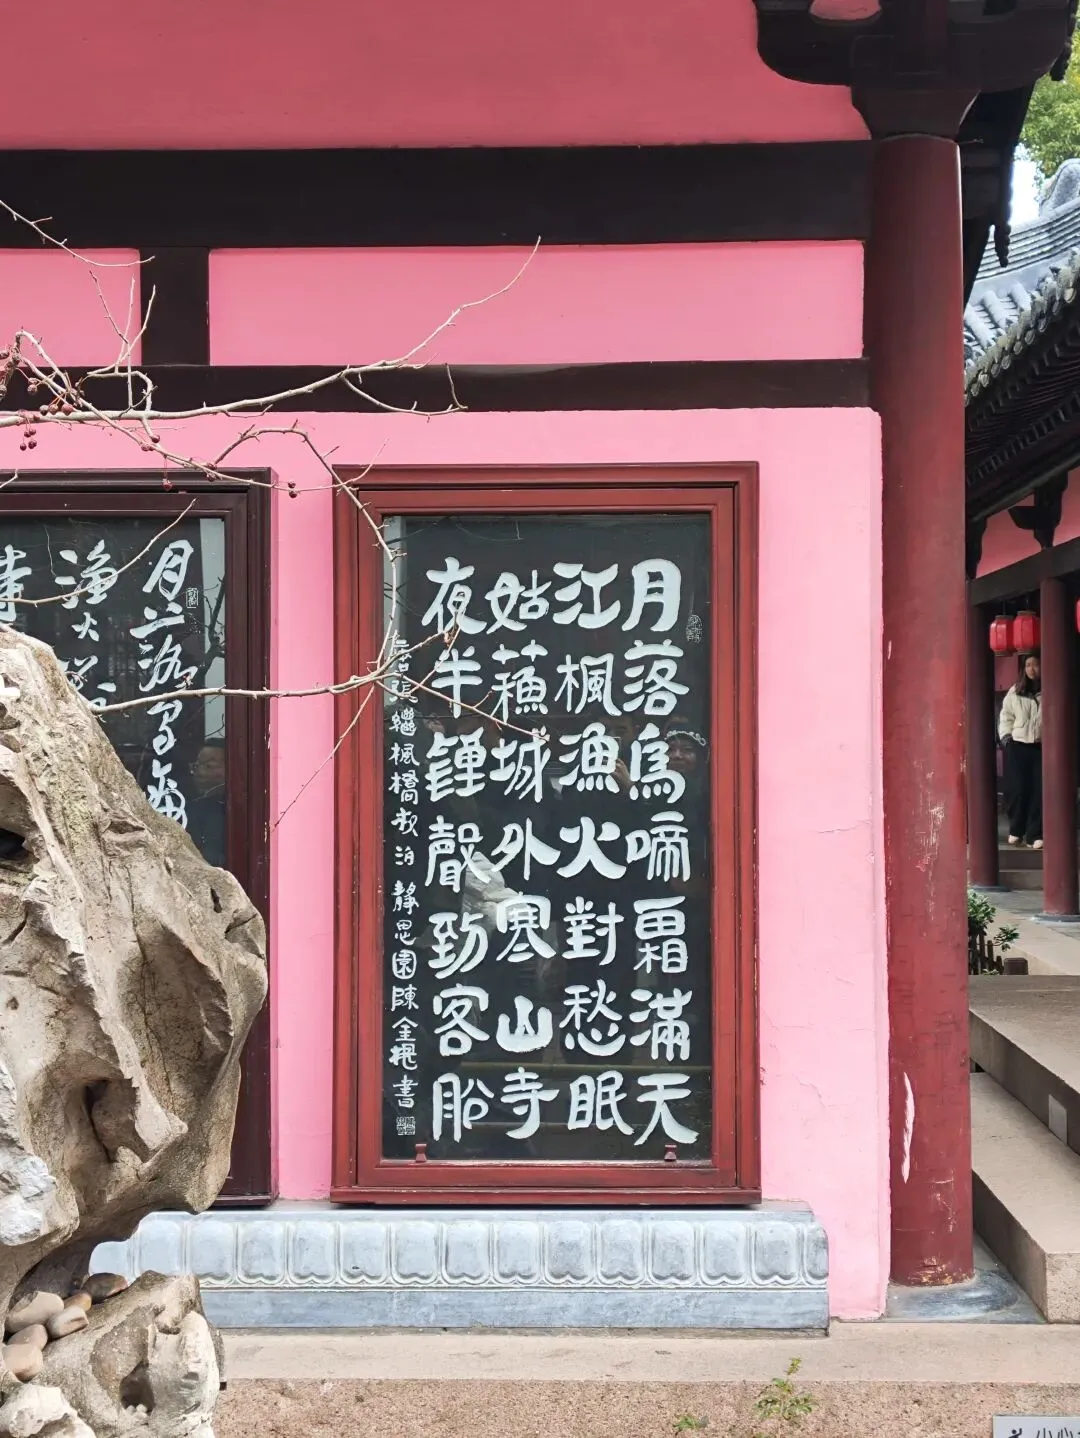 月落烏啼霜滿天
江楓漁火對愁眠
姑蘓城外寒山寺
夜半鍾聲到客船
唐張繼楓橋夜泊 靜思園陳金根書
月落烏啼
漁火
小心